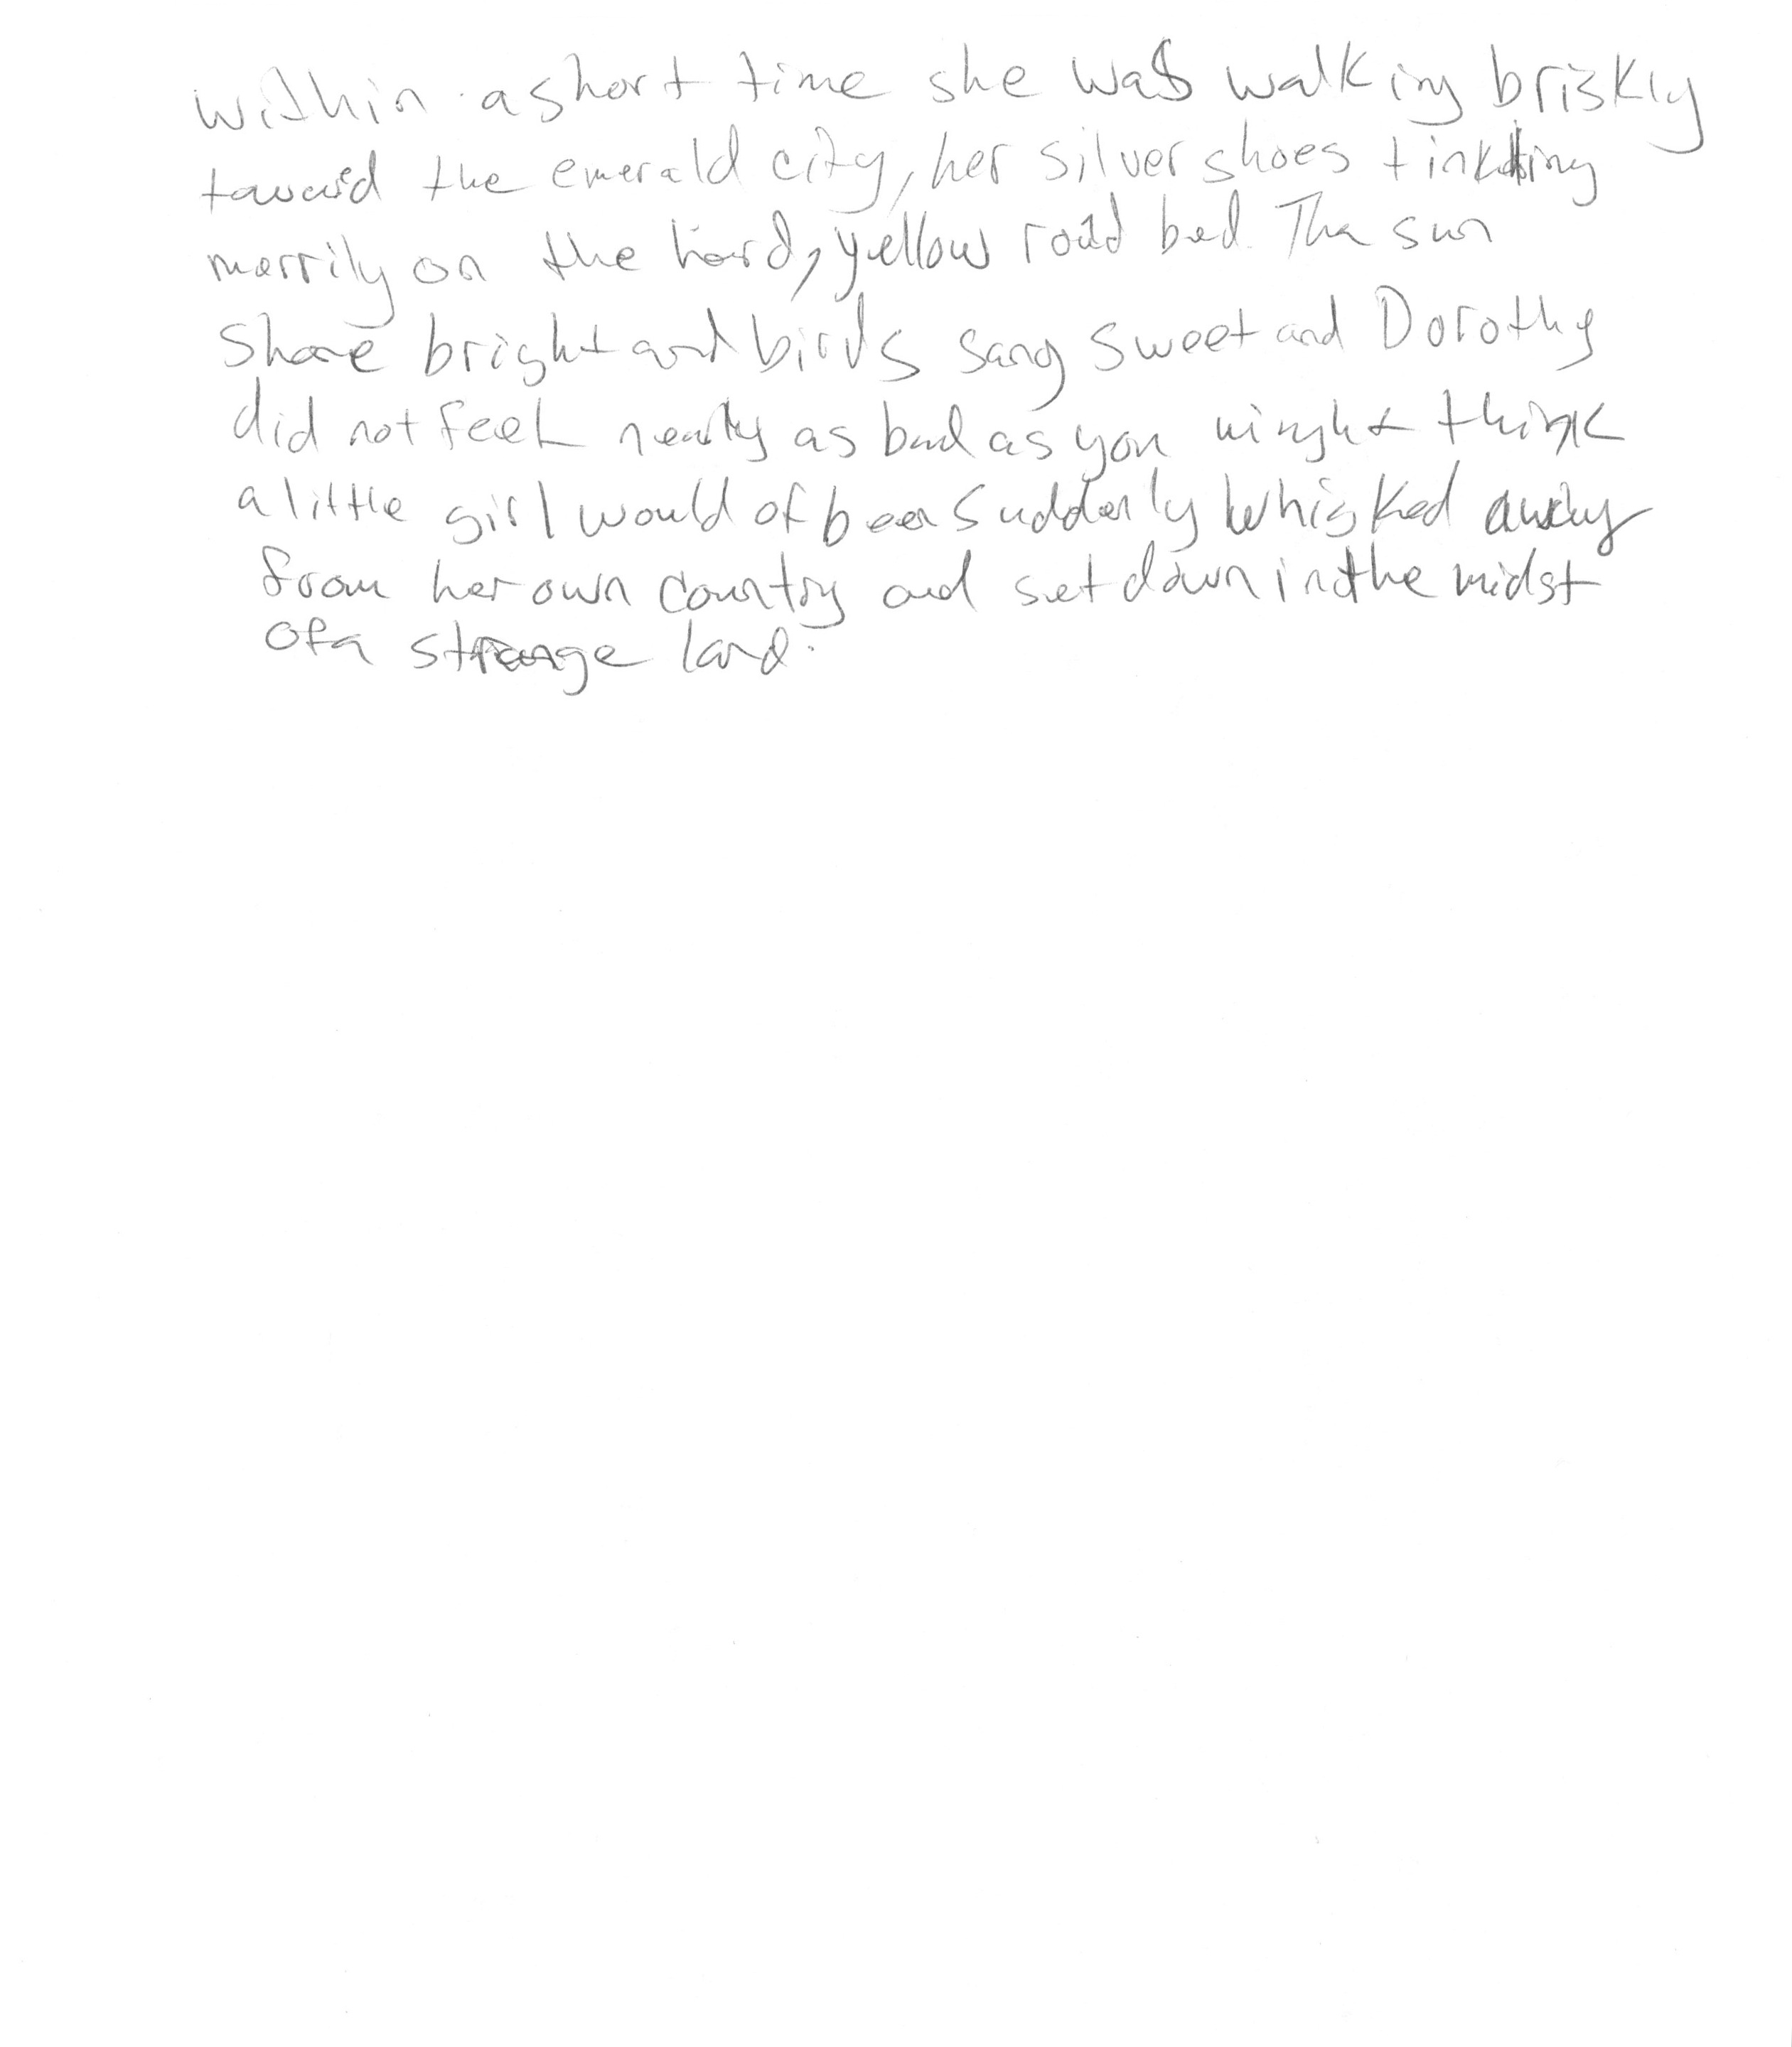 within a short time she was walking briskly
toward the emerald city, her silver shoes tinkling
merrily on the hard, yellow road bed. The sun
shone bright and birds sang sweet and Dorothy
did not feel nearly as bad as you might think
a little girl would of been suddenly whisked away
from her own country and set down in the midst
of a strange land.